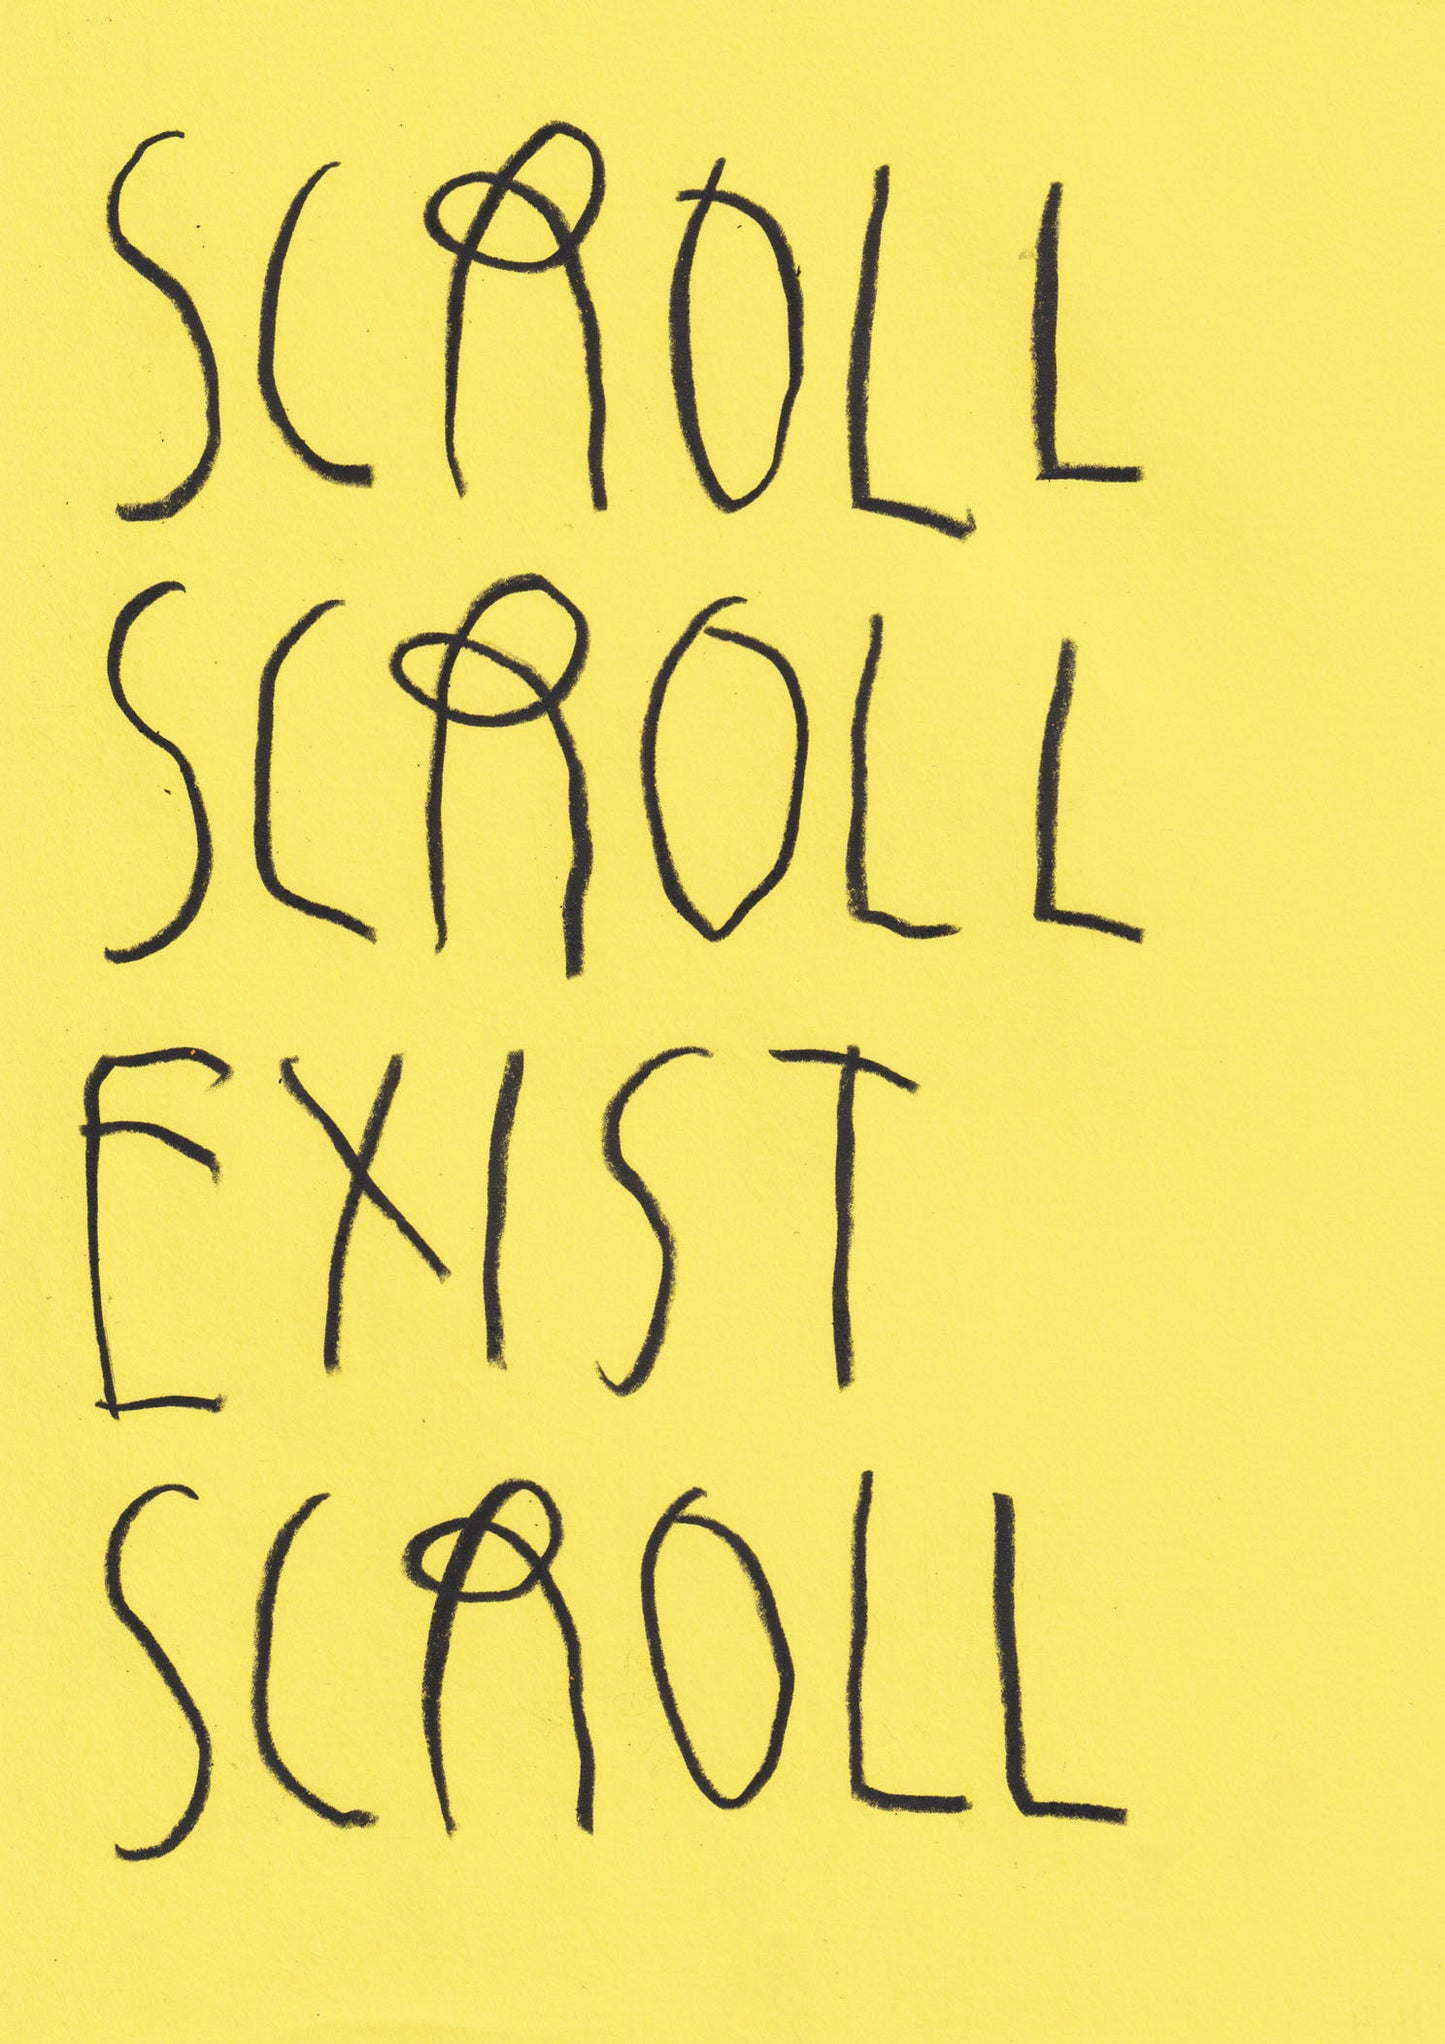 SCROLL
SCROLL
EXIST
SCROLL